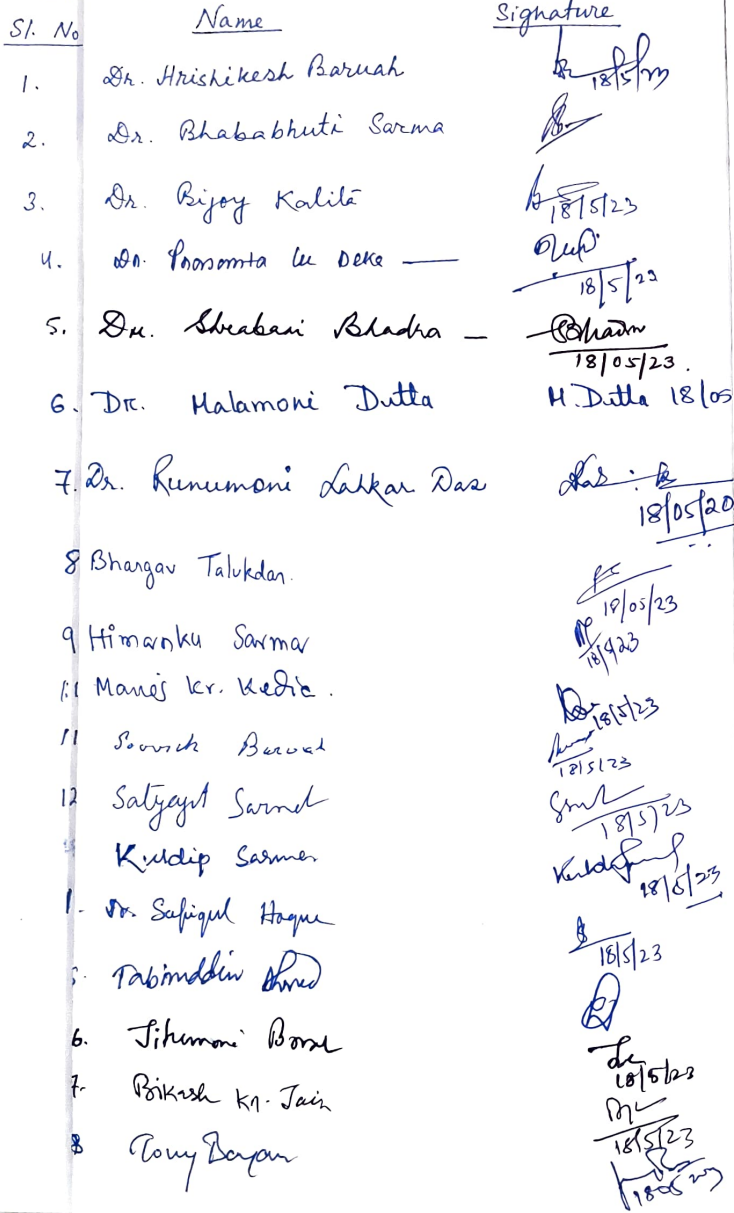 Sl. No Name Signature
1. Dr. Hrishikesh Baruah 18/5/23
2. Dr. Bhababhuti Sarma
3. Dr. Bijoy Kalita 18/5/23
4. Dr. Deka — 18/5/23
5. Dr. Shrabani Bhadra — Bhadra
18/05/23.
6. Dr. Malamoni Dutta M. Dutta 18/05
7. Dr. Runumoni Lahkar Das Das
18/05/20
8 Bhargav Talukdar.
18/05/23
9 Himanku Sarma
Manoj Kr. Kedia. 18/5/23
11 Baruah
18/5/23
12 Satyajit Sarma
18/5/23
Kuldip Sarma
18/5/23
1. Dr. Safiqul Haque
18/5/23
5. Tabinuddin Ahmed
6. Jitumoni Borah
18/5/23
7. Bikash Kr. Jain
18/5/23
8 Tony Bayan